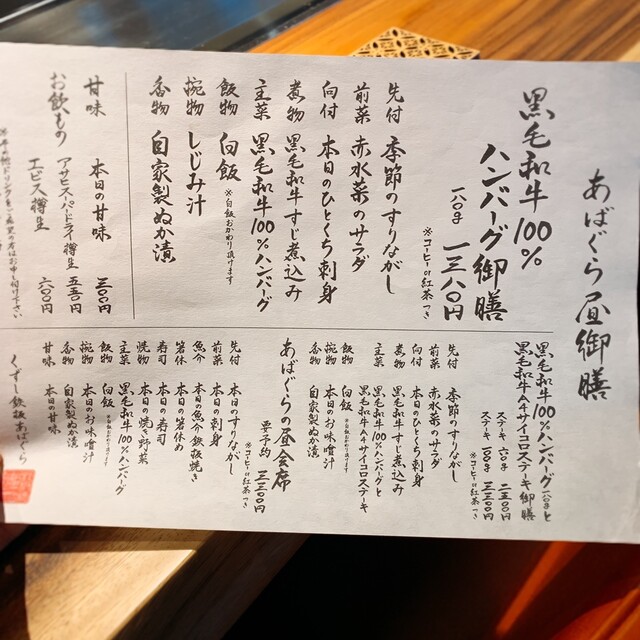 あばぐら昼御膳
黒毛和牛100%
ハンバーグ御膳
一八〇g 一三八〇円
※コーヒーor紅茶つき
先付 季節のすりながし
前菜 赤水菜のサラダ
向付 本日のひとくち刺身
煮物 黒毛和牛すじ煮込み
主菜 黒毛和牛100%ハンバーグ
飯物 白飯
※白飯おかわり頂けます
椀物 しじみ汁
香物 自家製ぬか漬
甘味 本日の甘味 三〇〇円
お飲もの アサヒスーパードライ樽生 五五〇円
エビス樽生 六〇〇円
黒毛和牛100%ハンバーグ一八〇gと
黒毛和牛A4サイコロステーキ御膳
ステーキ 六〇g 二二五〇円
ステーキ 一〇〇g 三二五〇円
※コーヒーor紅茶つき
先付 季節のすりながし
前菜 赤水菜のサラダ
向付 本日のひとくち刺身
煮物 黒毛和牛すじ煮込み
主菜 黒毛和牛100%ハンバーグと
黒毛和牛A4サイコロステーキ
飯物 白飯
※白飯おかわり頂けます
椀物 本日のお味噌汁
香物 自家製ぬか漬
あばぐらの昼会席
要予約 三三〇〇円
※コーヒーor紅茶つき
先付 本日のすりながし
前菜 本日の刺身
魚介 本日の魚介鉄板焼き
箸休 本日の箸休め
寿司 本日の寿司
焼物 本日の焼き野菜
主菜 黒毛和牛100%ハンバーグ
飯物 白飯
※白飯おかわり頂けます
椀物 本日のお味噌汁
香物 自家製ぬか漬
甘味 本日の甘味
くずし鉄板あばぐら